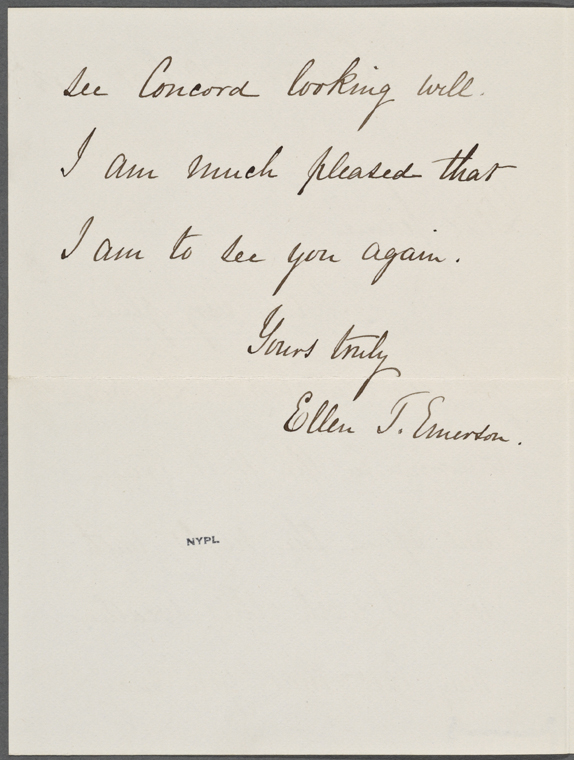 see Concord looking well.
I am much pleased that
I am to see you again.
Yours truly
Ellen T. Emerson.
NYPL